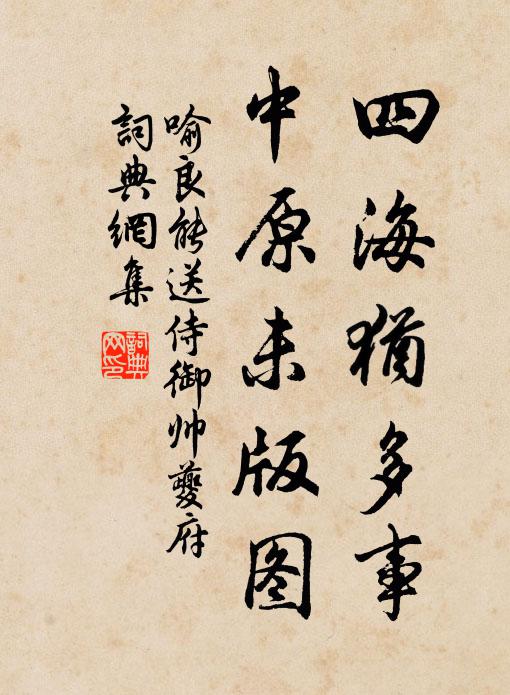 四海猶多事
中原未版图
喻良能送侍御帅夔府
詞典網集
詞典
网印